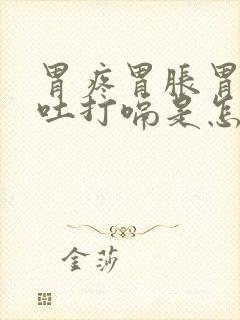 胃疼胃胀胃
吐打嗝是怎
金莎